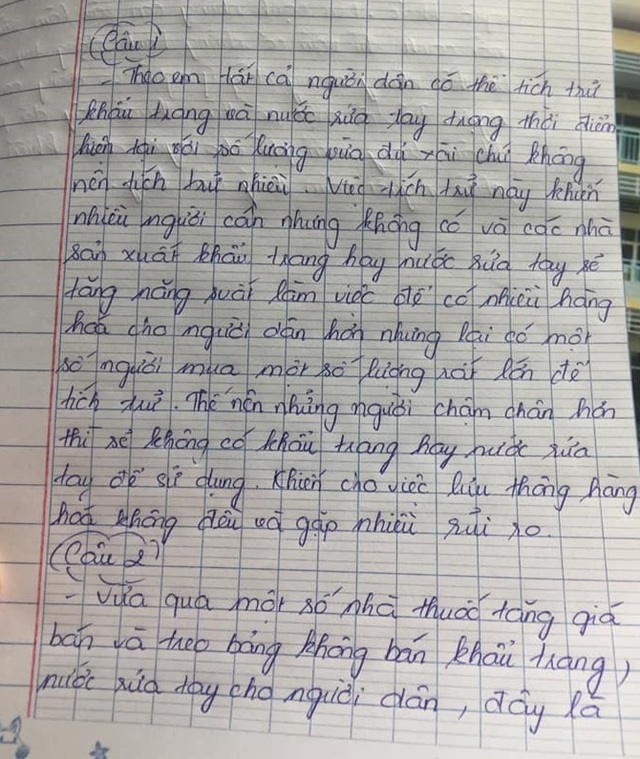 Câu 1
- Theo em tất cả người dân có thể tích trữ
khẩu trang và nước rửa tay trong thời điểm
hiện tại với số lượng vừa đủ xài chứ không
nên tích trữ nhiều. Việc tích trữ này khiến
nhiều người cần nhưng không có và các nhà
sản xuất khẩu trang hay nước rửa tay sẽ
tăng năng suất làm việc để có nhiều hàng
hoá cho người dân hơn nhưng lại có một
số người mua một số lượng rất lớn để
tích trữ. Thế nên những người chậm chân hơn
thì sẽ không có khẩu trang hay nước rửa
tay để sử dụng. Khiến cho việc lưu thông hàng
hoá không đều và gặp nhiều rủi ro.
Câu 2
- Vừa qua một số nhà thuốc tăng giá
bán và treo bảng không bán khẩu trang,
nước rửa tay cho người dân, đây là